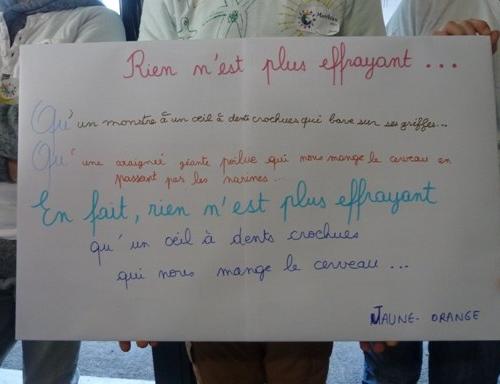 Rien n'est plus effrayant ...
Qu'un monstre à un œil à dents crochues qui bave sur ses griffes...
Qu'une araignée géante poilue qui nous mange le cerveau en
passant par les narines...
En fait, rien n'est plus effrayant
qu'un œil à dents crochues
qui nous mange le cerveau ...
JAUNE- ORANGE